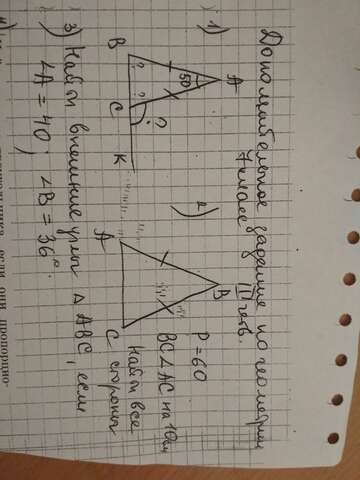 Дополнительное задание по геометрии
7 класс III четв.
1)
A
50
B
?
?
C
?
K
2)
B
A
C
P = 60
BC∠AC на 10см
Найти все
стороны
3) Найти внешние углы △ABC, если
∠A = 40; ∠B = 36°.
если они пропорцио-